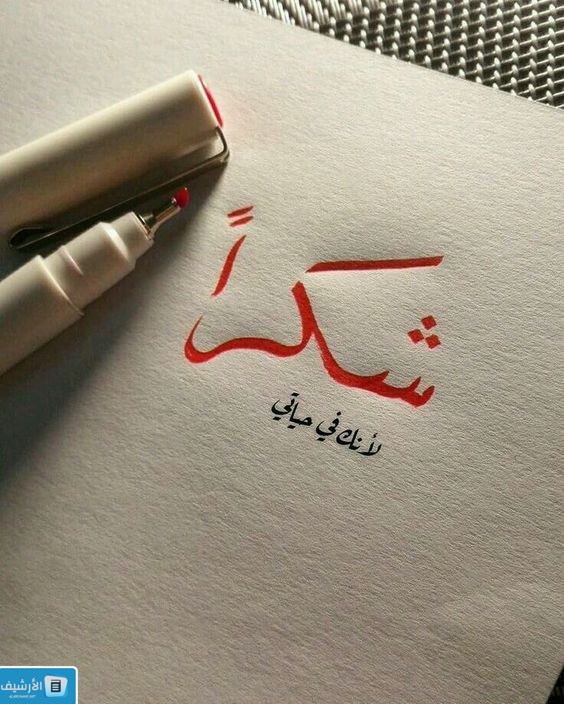 شكراً
لأنك في حياتي
الأرشيف